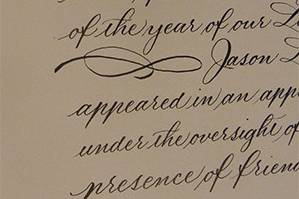 of the year of our L
Jason
appeared in an app
under the oversight of
presence of frien